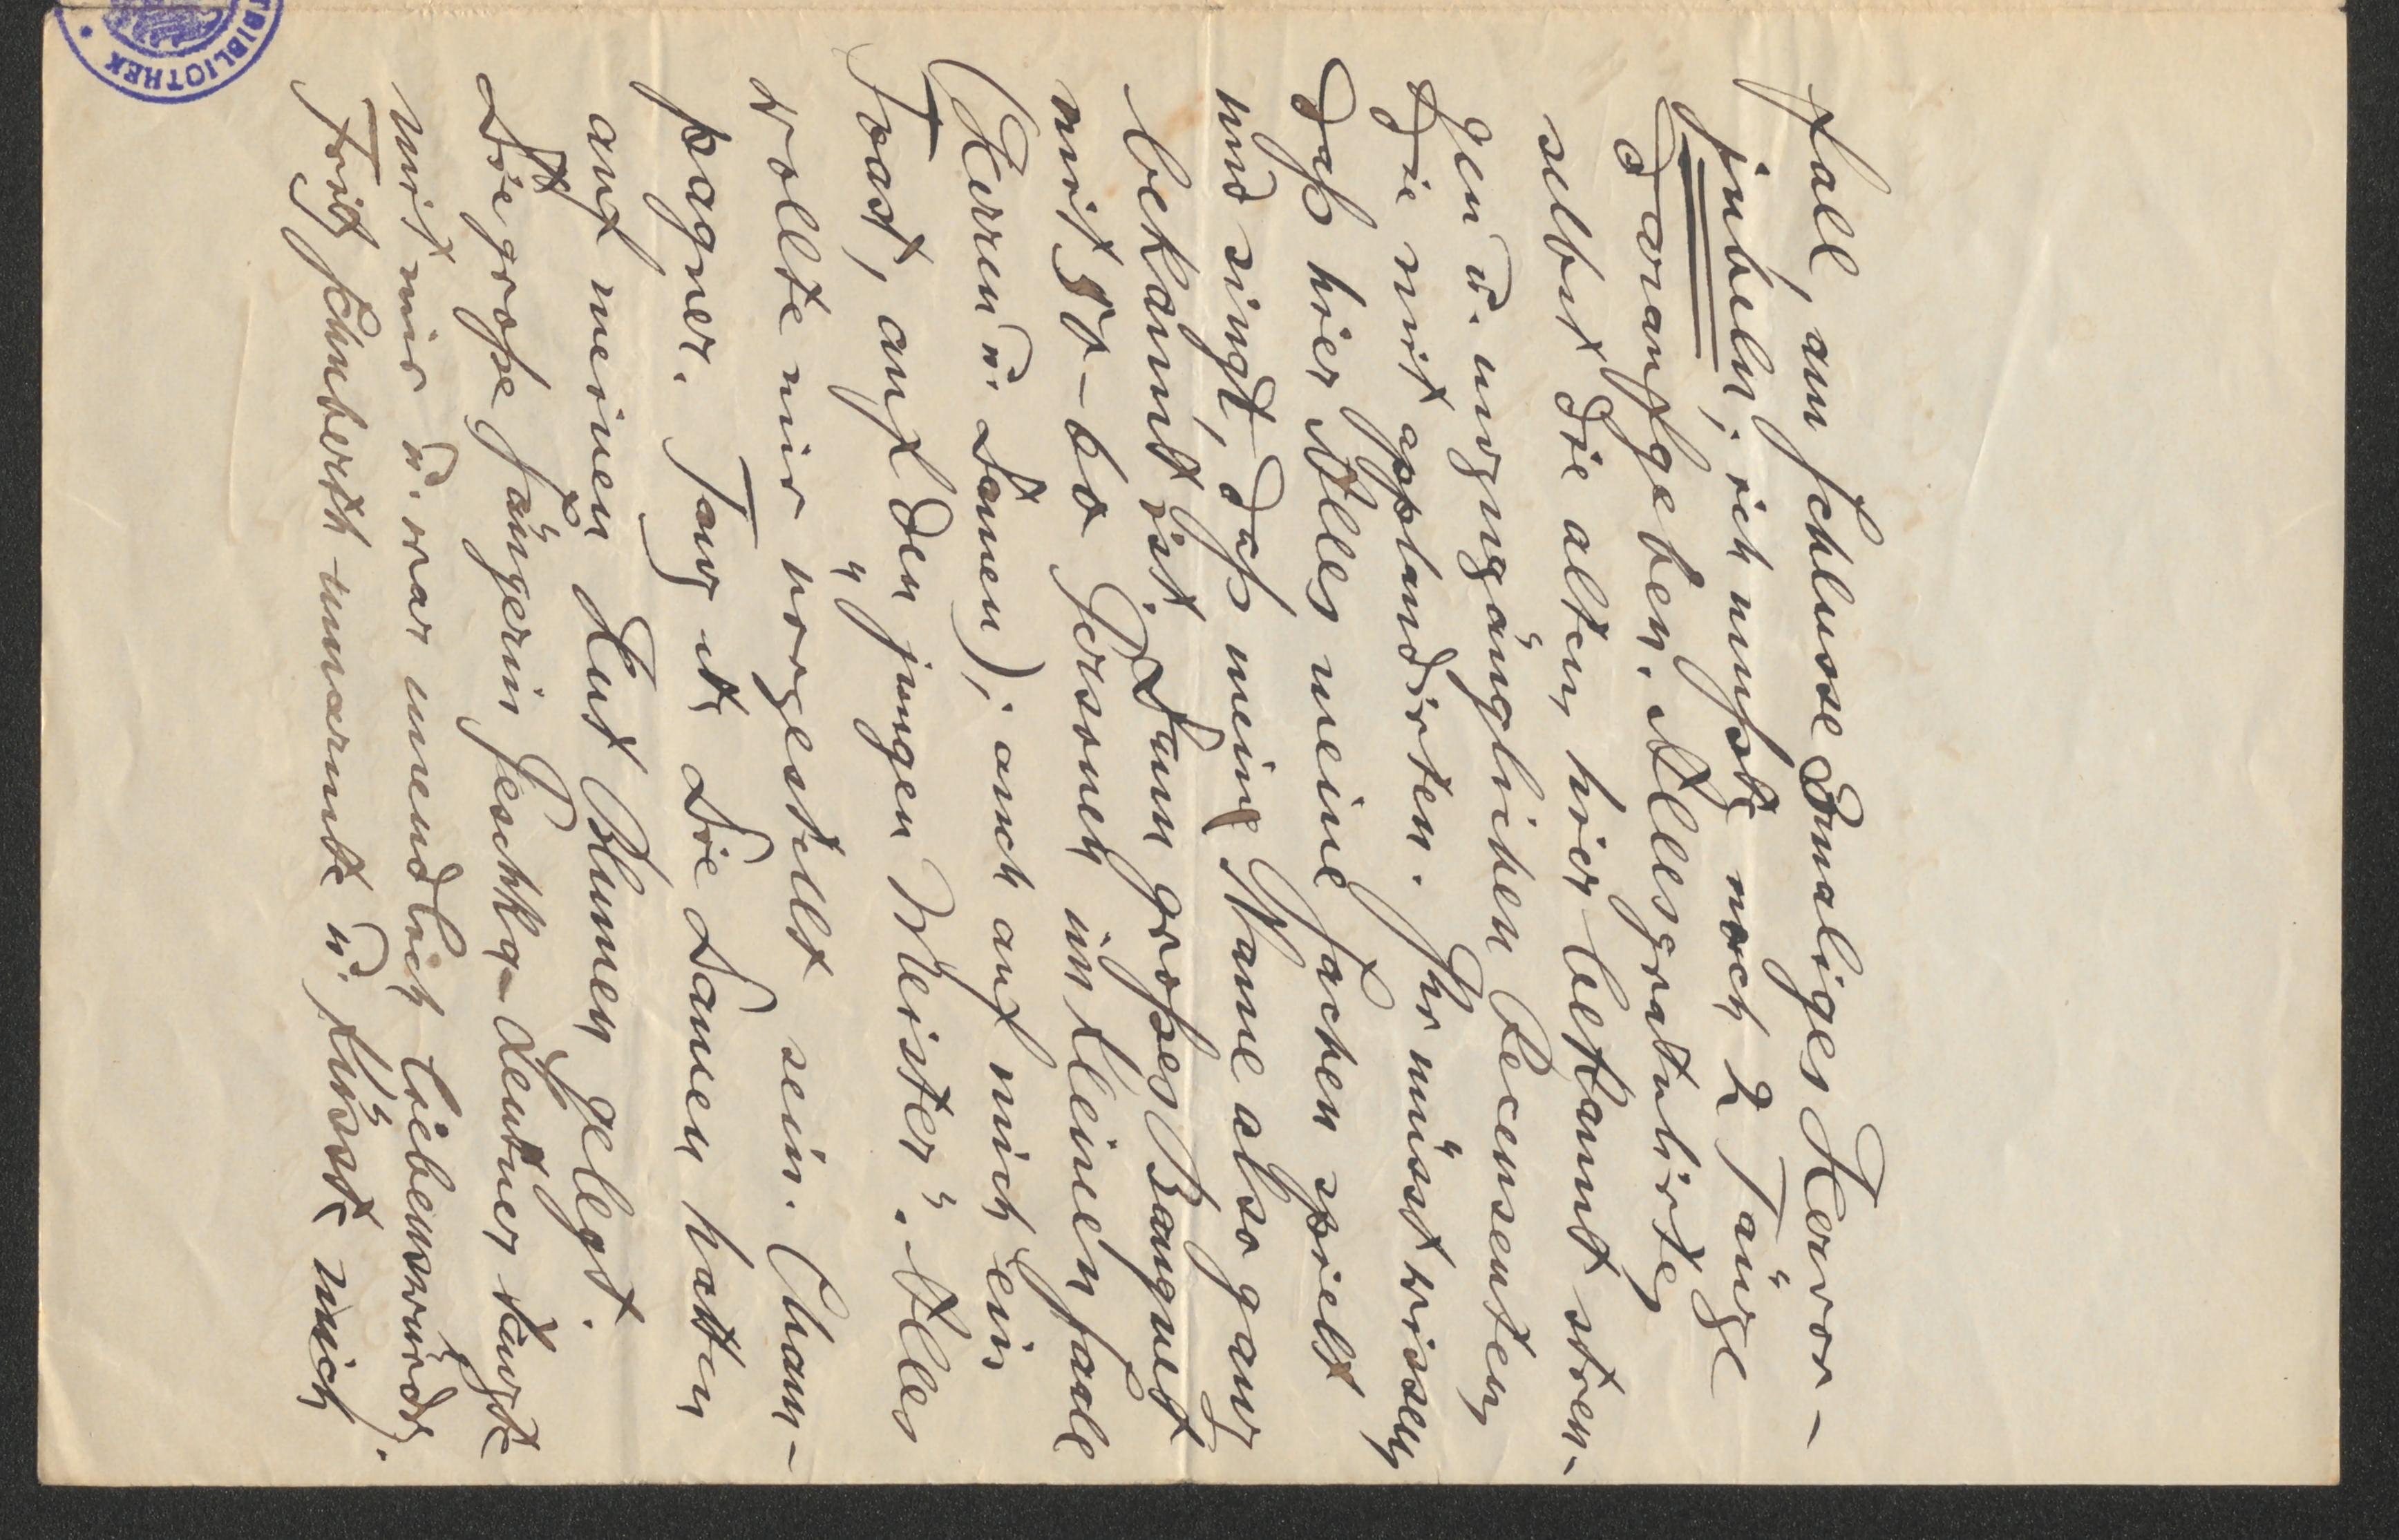 fall, am Schlusse 3maliges Hervor-
jubeln; ich mußte noch 2 Tänze
daraufgeben. Alles gratulirte,
selbst die alten, hier bekannt stren-
gen u. unzugänglichen Recensenten,
die mit applaudirten. Ihr müsst wissen,
daß hier Alles meine Sachen spielt
und singt, daß mein Name also ganz
bekannt ist. Dann großes Banquet
mit 50-60 Personen im kleinen Saale
(Herren u. Damen); auch auf mich ein
Toast, auf den "jungen Meister". Alles
wollte mir vorgestellt sein. Cham-
pagner. Tanz etc. Die Damen hatten
auf meinen Hut Blumen gelegt.
Die große Sängerin Peschka-Leutner tanzte
mit mir u. war unendlich liebenswürdig.
Fritz Schuberth umarmte u. küsste mich
BIBLIOTHEK